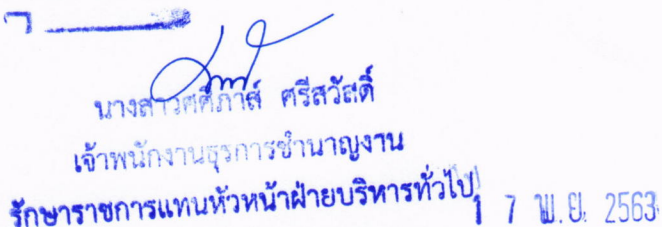 นางสาวศศิภาส์ ศรีสวัสดิ์
เจ้าพนักงานธุรการชำนาญงาน
รักษาราชการแทนหัวหน้าฝ่ายบริหารทั่วไป
17 พ.ย. 2563